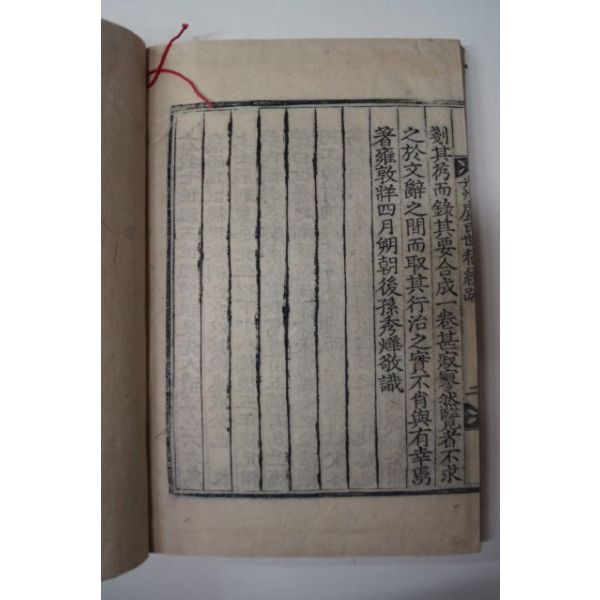 剗其蒭而錄其要合成一卷甚寂寥然覽者不求
之於文辭之間而取其行治之實不肖與有幸焉
著雍敦牂四月朔朝後孫秀燁敬識
二